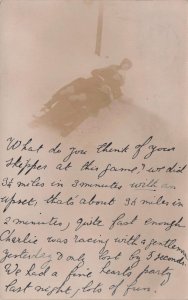 What do you think of your
skipper at this game? we did
3¼ miles in 3 minutes with an
upset, that's about 3¼ miles in
2 minutes, quite fast enough
Charlie was racing with a gentleman
yesterday & only lost by 5 seconds
We had a fine hearts party
last night, lots of fun.